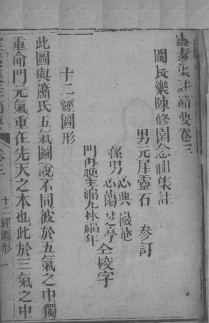 靈素集註節要卷三
閩長樂陳修園念祖集註
男元犀靈石 參訂
孫男心典徽庵
心蘭芝亭 全校字
門再晚生
十二經圖形
此圖與蕭氏五氣圖說不同彼於五氣之中獨
重命門元氣重在先天之本也此於三氣之中
十二經圖形 一